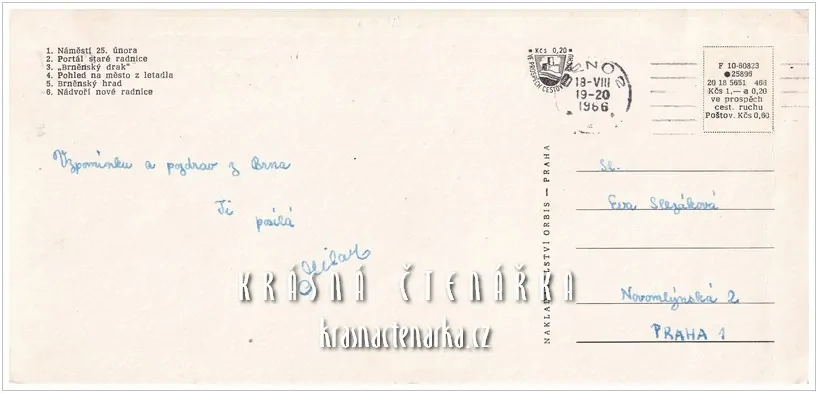 1. Náměstí 25. února
2. Portál staré radnice
3. „Brněnský drak"
4. Pohled na město z letadla
5. Brněnský hrad
6. Nádvoří nové radnice
Kčs 0,20
BRNO 2
18-VIII
19-20
1966
F 10-60823
●25896
20 18 5651 466
Kčs 1,— a 0,20
ve prospěch
cest. ruchu
Poštov. Kčs 0,60
Vzpomínku a pozdrav z Brna
Ti
posílá
NAKLADATELSTVÍ ORBIS — PRAHA
Sl.
Eva Slezáková
Novomlýnská 2
PRAHA 1
KRÁSNÁ ČTENÁŘKA
krasnactenarka.cz